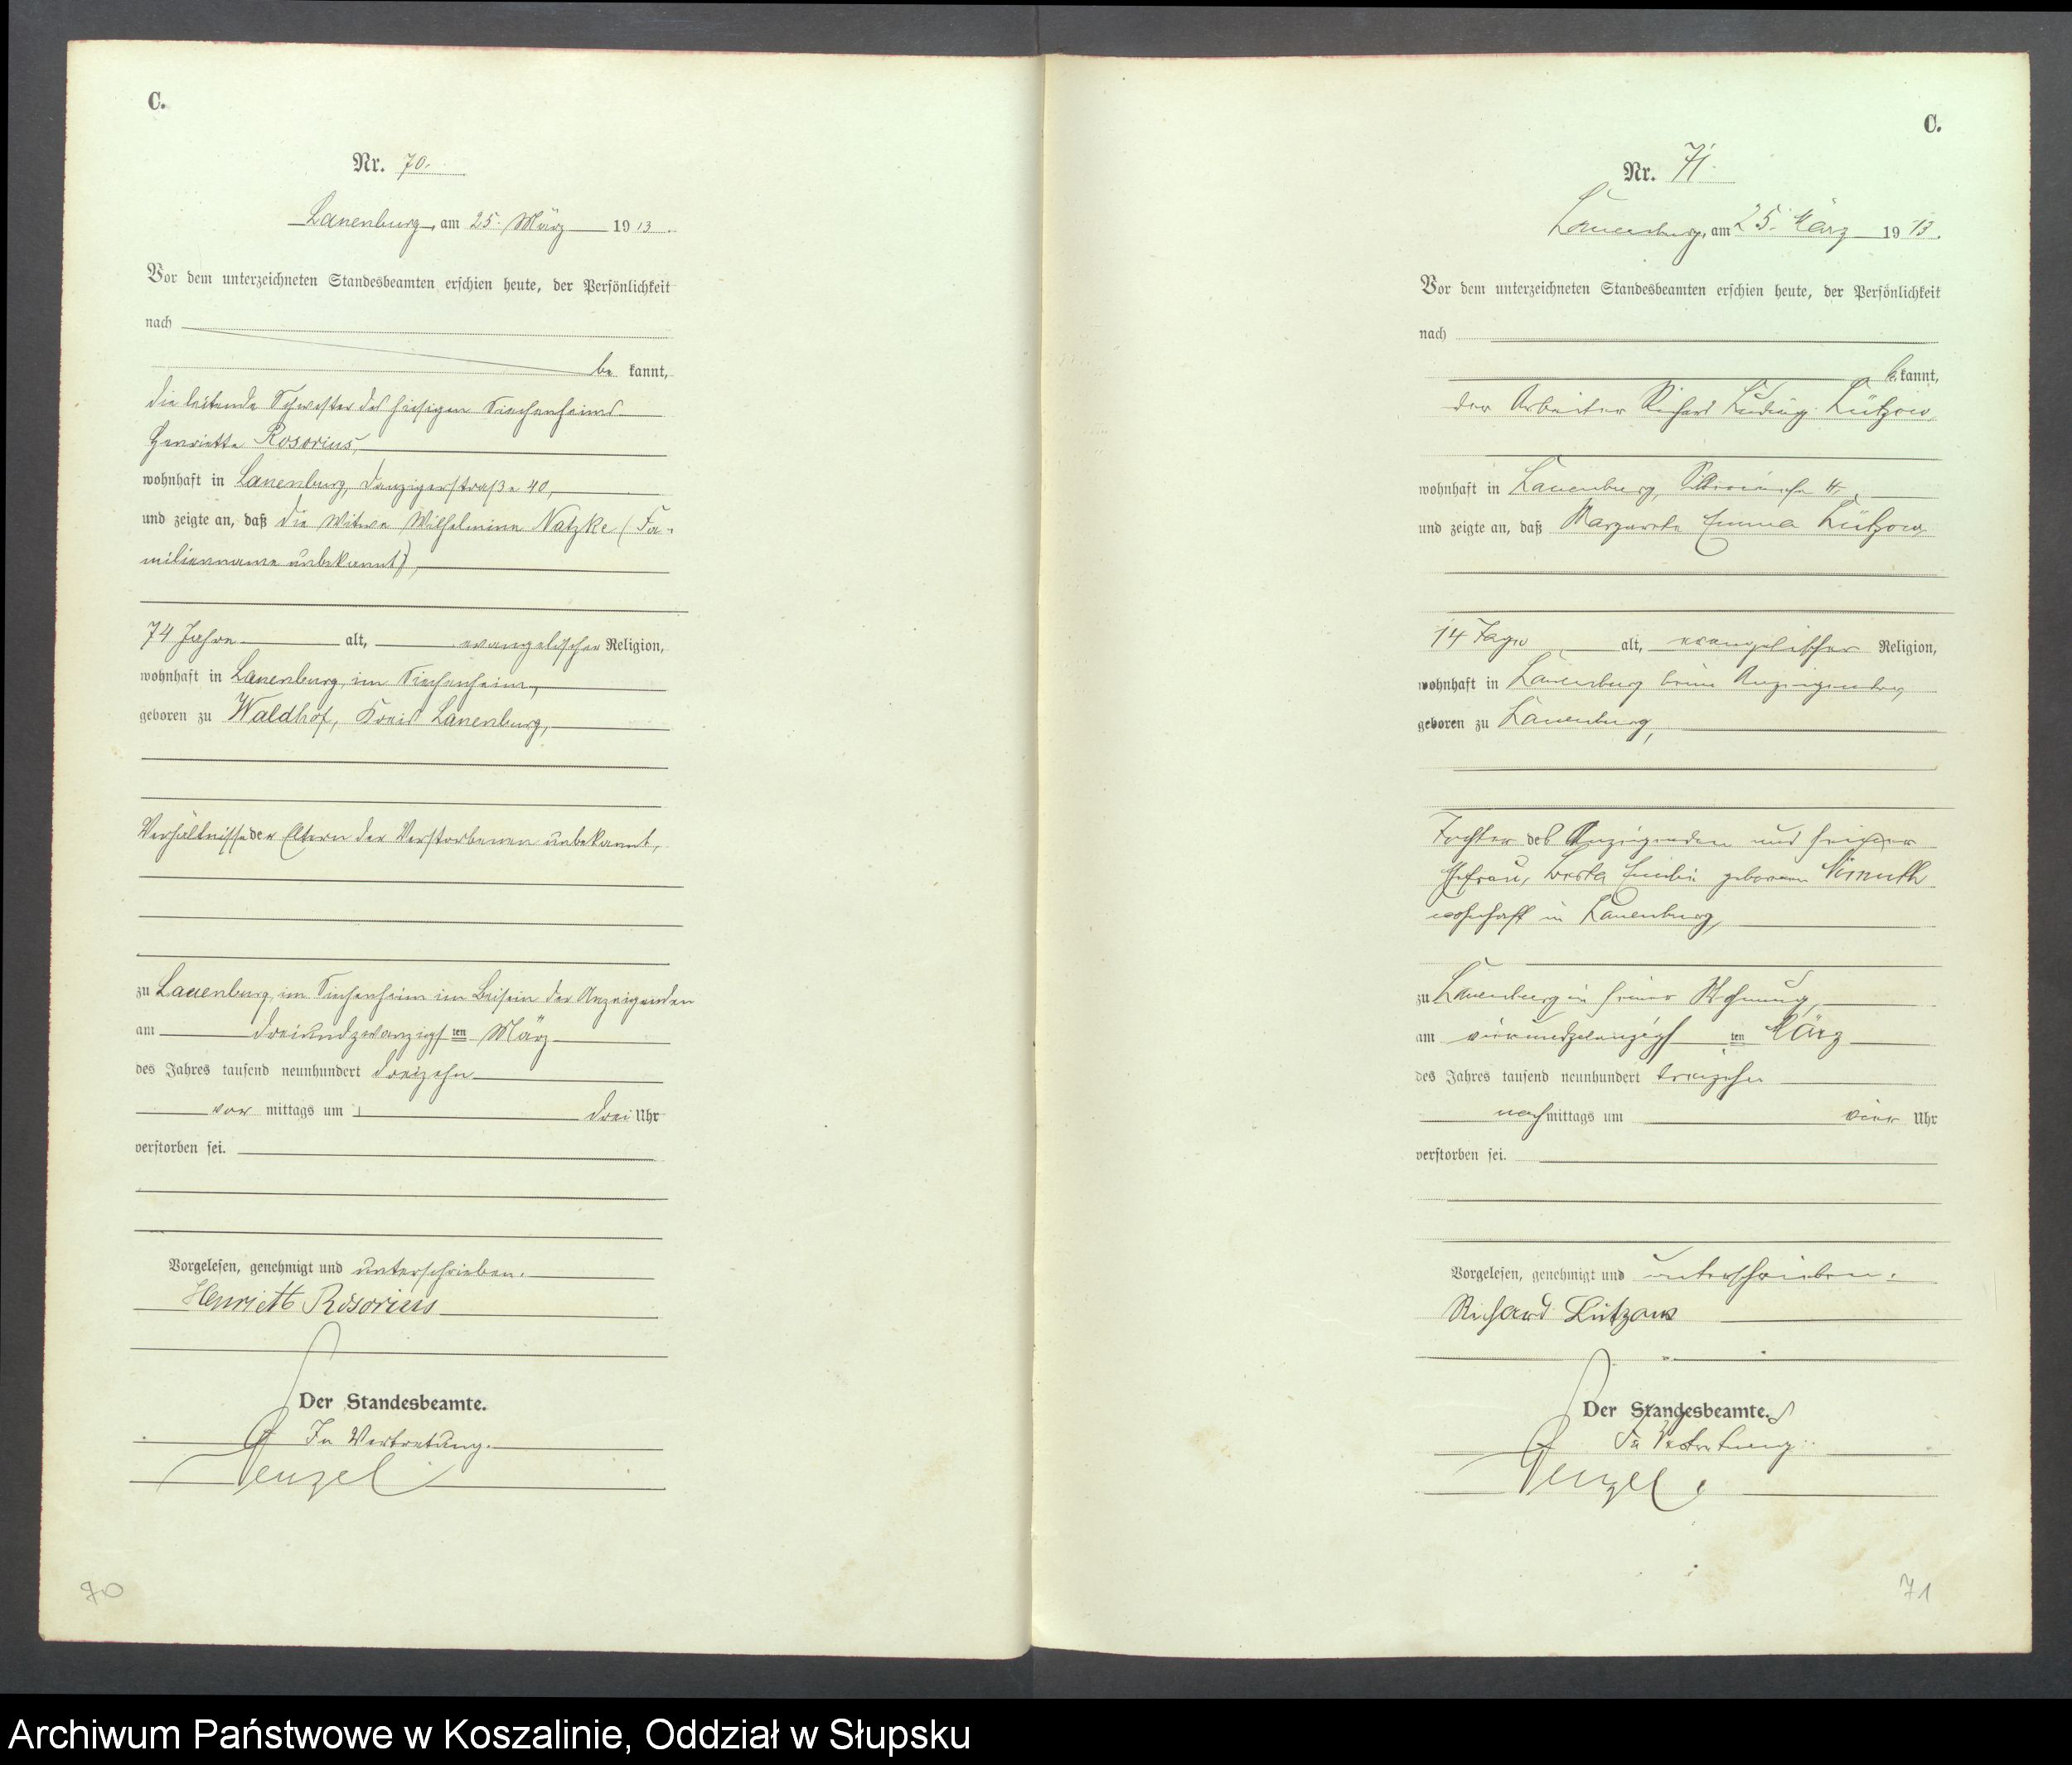 C.
Nr. 70.
Lauenburg, am 25. März 1913.
Vor dem unterzeichneten Standesbeamten erschien heute, der Persönlichkeit
nach
be kannt,
die leitende Schwester des hiesigen Siechenheims
Henriette Rosorius,
wohnhaft in Lauenburg, Danzigerstraße 40,
und zeigte an, daß die Witwe Wilhelmine Natzke (Fa-
milienname unbekannt),
74 Jahre alt, evangelischer Religion,
wohnhaft in Lauenburg, im Siechenheim,
geboren zu Waldhof, Kreis Lauenburg,
Verhältnisse der Eltern der Verstorbenen unbekannt,
zu Lauenburg, im Siechenheim im Beisein der Anzeigenden
am dreiundzwanzigsten März
des Jahres tausend neunhundert dreizehn
vor mittags um drei Uhr
verstorben sei.
Vorgelesen, genehmigt und unterschrieben.
Henriette Rosorius
Der Standesbeamte.
In Vertretung.
70
C.
Nr. 71.
Lauenburg, am 25. März 1913.
Vor dem unterzeichneten Standesbeamten erschien heute, der Persönlichkeit
nach
be kannt,
der Arbeiter Richard Ludwig Lützow,
wohnhaft in Lauenburg,
und zeigte an, daß Margarete Emma Lützow,
14 Tage alt, evangelischer Religion,
wohnhaft in Lauenburg beim Anzeigenden,
geboren zu Lauenburg,
Tochter des Anzeigenden und seiner
Ehefrau, geborenen
wohnhaft in Lauenburg,
zu Lauenburg in seiner Wohnung,
am vierundzwanzigsten März
des Jahres tausend neunhundert dreizehn
nach mittags um vier Uhr
verstorben sei.
Vorgelesen, genehmigt und unterschrieben.
Richard Lützow
Der Standesbeamte.
In Vertretung.
71
Archiwum Państwowe w Koszalinie, Oddział w Słupsku